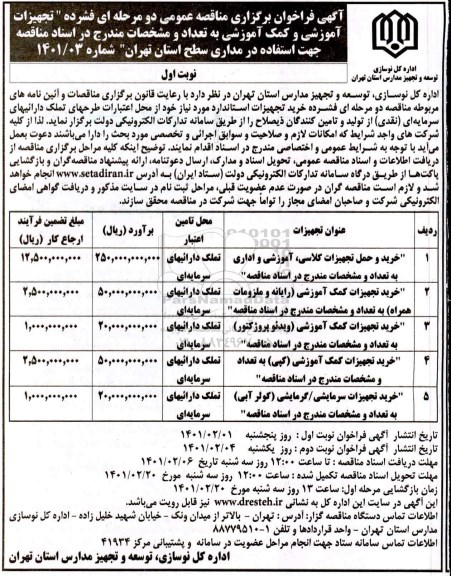 آگهی فراخوان برگزاری مناقصه عمومی دو مرحله ای فشرده "تجهیزات
آموزشی و کمک آموزشی به تعداد و مشخصات مندرج در اسناد مناقصه
جهت استفاده در مداری سطح استان تهران" شماره ۱۴۰۱/۰۳
اداره کل نوسازی
توسعه و تجهیز مدارس استان تهران
نوبت اول
اداره کل نوسازی، توسعه و تجهیز مدارس استان تهران در نظر دارد با رعایت قانون برگزاری مناقصات و آئین نامه های
مربوطه مناقصه دو مرحله ای فشرده خرید تجهیزات استاندارد مورد نیاز خود از محل اعتبارات طرحهای تملک دارائیهای
سرمایه‌ای (نقدی) از تولید و تامین کنندگان ذیصلاح را از طریق سامانه تدارکات الکترونیکی دولت برگزار نماید. لذا از کلیه
شرکت های واجد شرایط که امکانات لازم و صلاحیت و سوابق اجرائی و تخصصی مورد بحث را دارا می‌باشند دعوت بعمل
می‌آید با توجه به شرایط عمومی و اختصاصی مندرج در اسناد اقدام نمایند. توضیح اینکه کلیه مراحل برگزاری مناقصه از
دریافت اطلاعات و اسناد مناقصه عمومی، تحویل اسناد و مدارک، ارسال دعوتنامه، ارائه پیشنهاد مناقصه‌گران و بازگشایی
پاکت‌ها از طریق درگاه سامانه تدارکات الکترونیکی دولت (ستاد ایران) به آدرس www.setadiran.ir انجام خواهد
شد و لازم است مناقصه گران در صورت عدم عضویت قبلی، مراحل ثبت نام در سایت مذکور و دریافت گواهی امضای
الکترونیکی شرکت و صاحبان امضای مجاز را تواماً جهت شرکت در مناقصه محقق سازند.
ردیف عنوان تجهیزات محل تامین اعتبار برآورد (ریال) مبلغ تضمین فرآیند ارجاع کار (ریال)
۱ "خرید و حمل تجهیزات کلاسی، آموزشی و اداری به تعداد و مشخصات مندرج در اسناد مناقصه" تملک دارائیهای سرمایه‌ای ۲۵۰,۰۰۰,۰۰۰,۰۰۰ ۱۲,۵۰۰,۰۰۰,۰۰۰
۲ "خرید تجهیزات کمک آموزشی (رایانه و ملزومات همراه) به تعداد و مشخصات مندرج در اسناد مناقصه" تملک دارائیهای سرمایه‌ای ۵۰,۰۰۰,۰۰۰,۰۰۰ ۲,۵۰۰,۰۰۰,۰۰۰
۳ "خرید تجهیزات کمک آموزشی (ویدئو پروژکتور) به تعداد و مشخصات مندرج در اسناد مناقصه" تملک دارائیهای سرمایه‌ای ۲۰,۰۰۰,۰۰۰,۰۰۰ ۱,۰۰۰,۰۰۰,۰۰۰
۴ "خرید تجهیزات کمک آموزشی (کپی) به تعداد و مشخصات مندرج در اسناد مناقصه" تملک دارائیهای سرمایه‌ای ۵۰,۰۰۰,۰۰۰,۰۰۰ ۲,۵۰۰,۰۰۰,۰۰۰
۵ "خرید تجهیزات سرمایشی/گرمایشی (کولر آبی) به تعداد و مشخصات مندرج در اسناد مناقصه" تملک دارائیهای سرمایه‌ای ۲۰,۰۰۰,۰۰۰,۰۰۰ ۱,۰۰۰,۰۰۰,۰۰۰
تاریخ انتشار آگهی فراخوان نوبت اول : روز پنجشنبه ۱۴۰۱/۰۲/۰۱
تاریخ انتشار آگهی فراخوان نوبت دوم : روز یکشنبه ۱۴۰۱/۰۲/۰۴
مهلت دریافت اسناد مناقصه : تا ساعت ۱۲:۰۰ روز سه شنبه تاریخ ۱۴۰۱/۰۲/۰۶
مهلت تحویل اسناد مناقصه تکمیل شده : ساعت ۱۲:۰۰ روز سه شنبه مورخ ۱۴۰۱/۰۲/۲۰
زمان بازگشایی مرحله اول: ساعت ۱۳ روز سه شنبه مورخ ۱۴۰۱/۰۲/۲۰
این آگهی در سایت این اداره کل به نشانی www.dresteh.ir نیز قابل رویت می‌باشد.
اطلاعات تماس دستگاه مناقصه گزار: آدرس : تهران - بالاتر از میدان ونک - خیابان شهید خلیل زاده - اداره کل نوسازی
مدارس استان تهران - واحد قراردادها و تلفن ۱-۸۸۷۷۹۵۱۰
اطلاعات تماس سامانه ستاد جهت انجام مراحل عضویت در سامانه و پشتیبانی مرکز ۴۱۹۳۴
اداره کل نوسازی، توسعه و تجهیز مدارس استان تهران